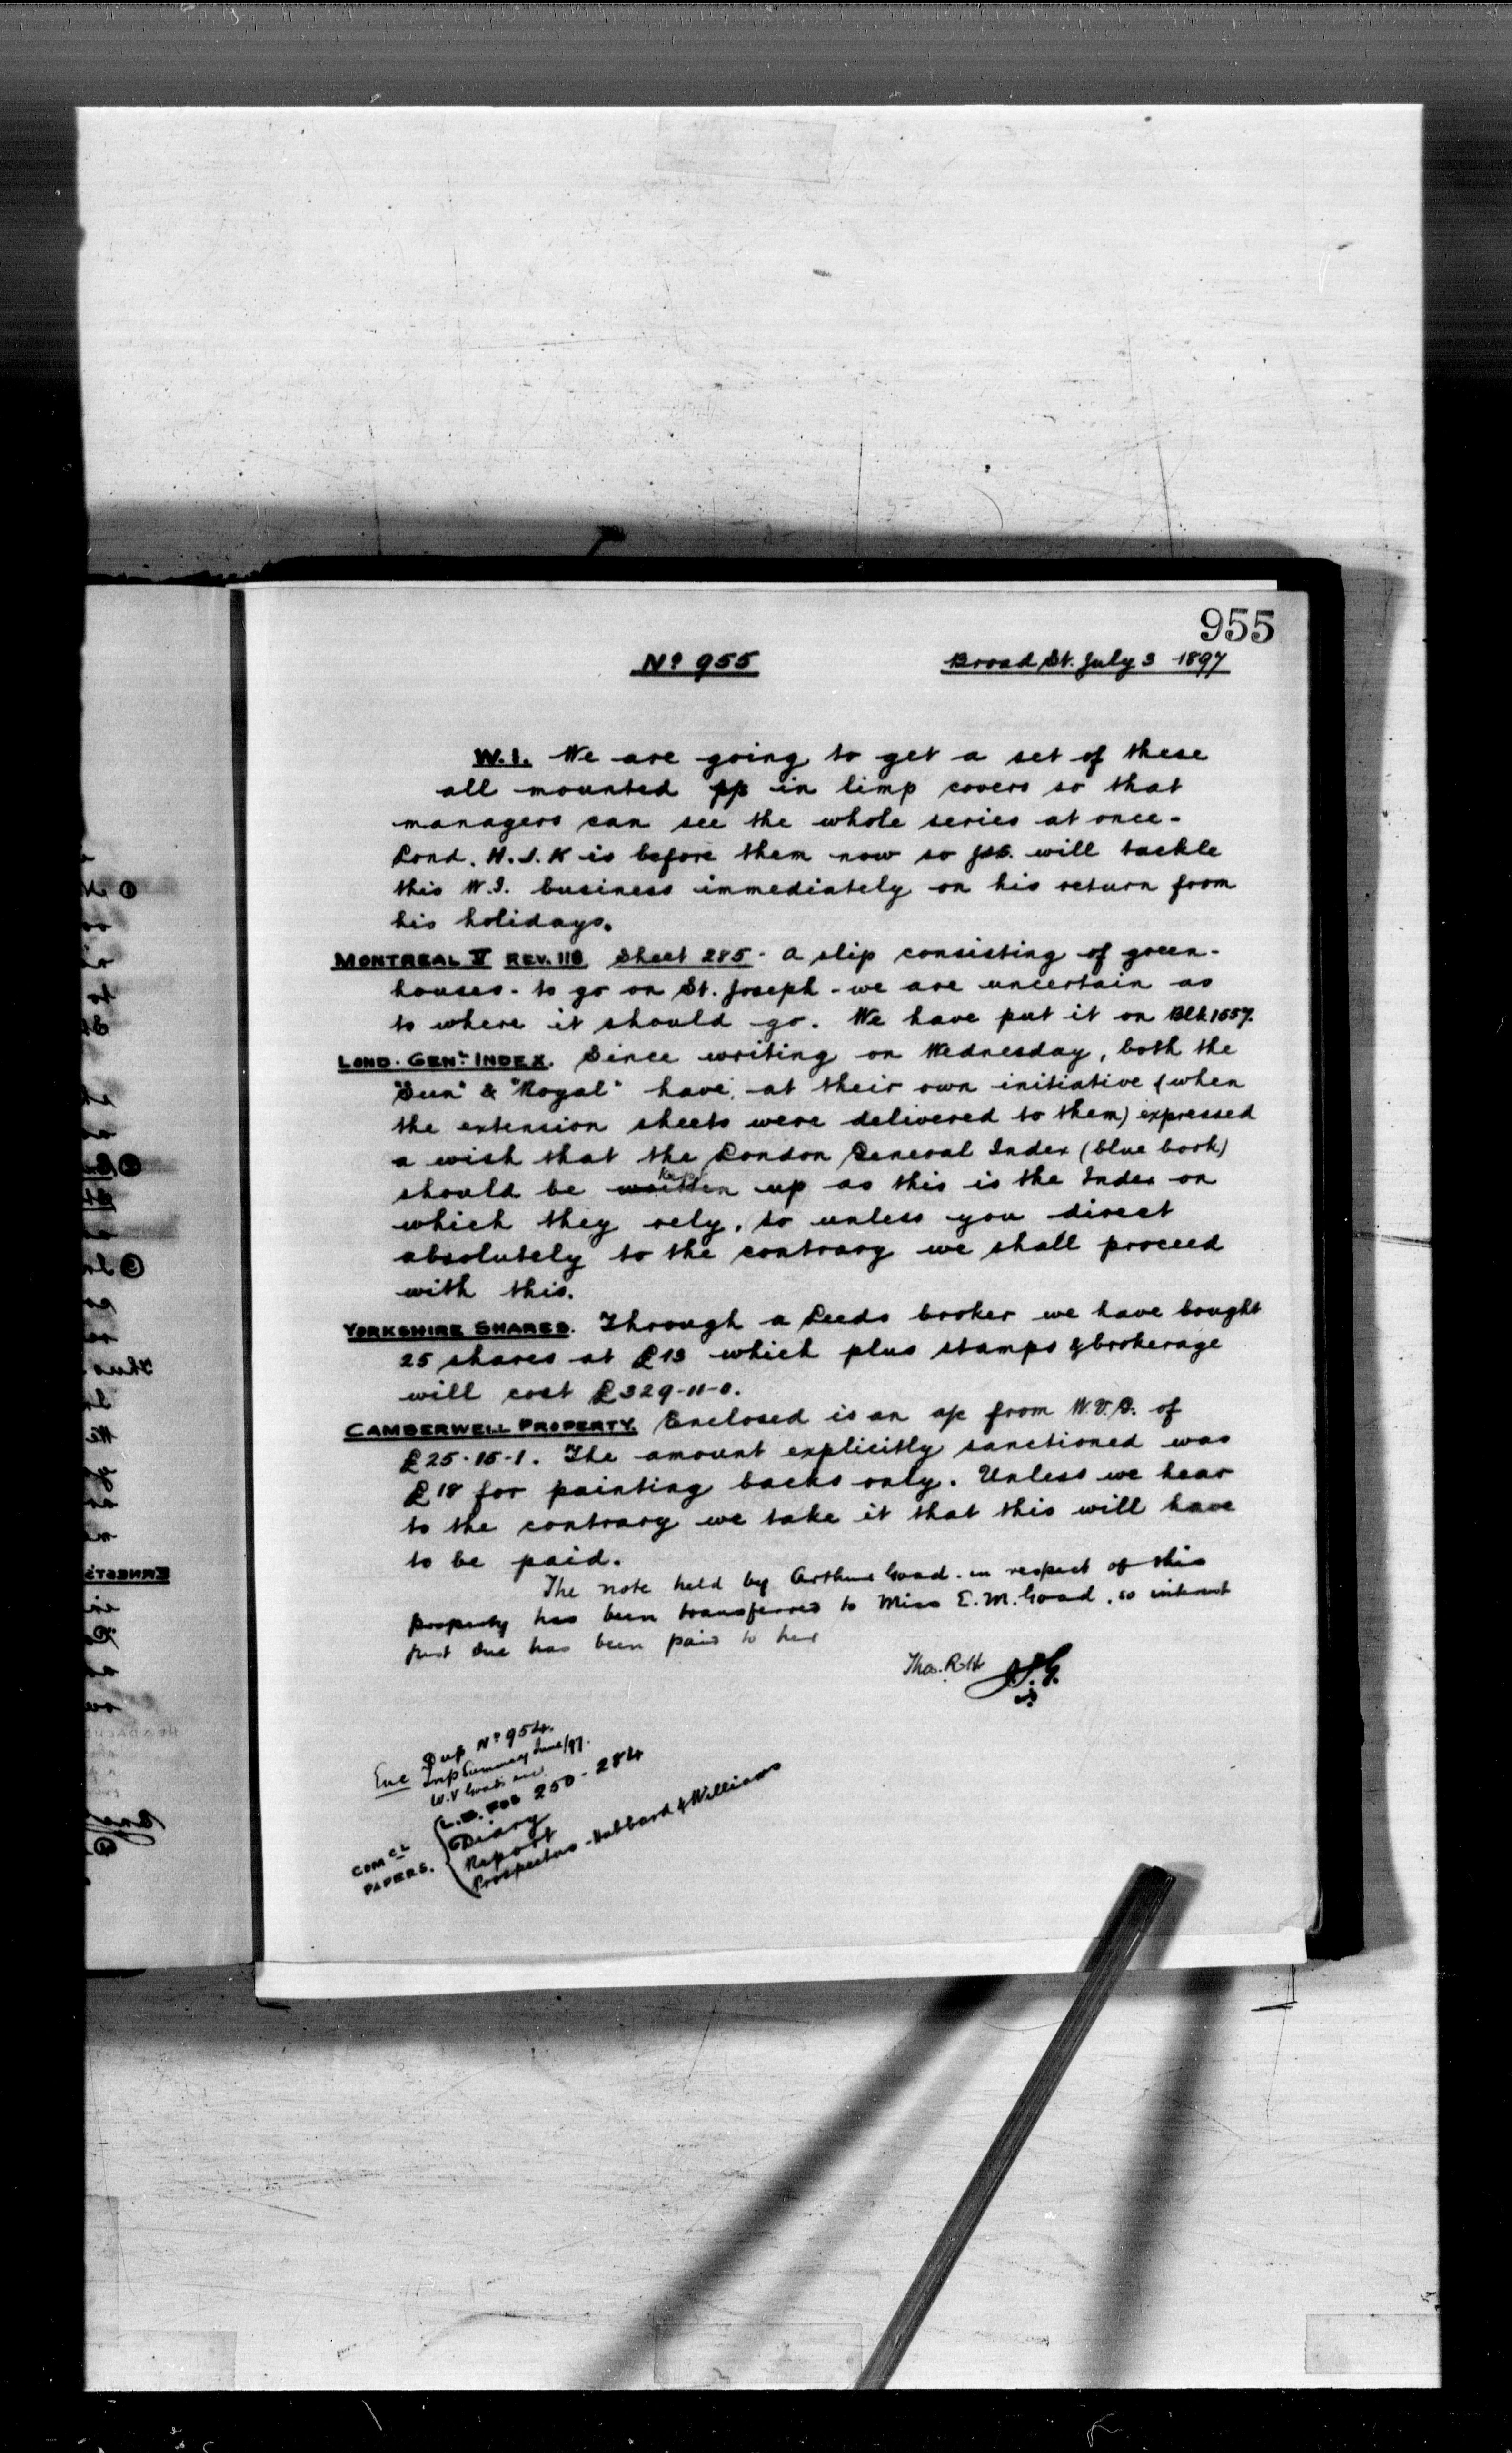 955
Nº 955
Broad St. July 3 1897
W.I. We are going to get a set of these
all mounted pp in limp covers so that
managers can see the whole series at once -
Lond. H.I.K is before them now so will tackle
this W.I. business immediately on his return from
his holidays.
MONTREAL V REV. 118 Sheet 285 - A slip consisting of green-
houses - to go on St. Joseph - we are uncertain as
to where it should go. We have put it on Blk 1557.
LOND. GENL. INDEX. Since writing on Wednesday, both the
"Sun" & "Royal" have, at their own initiative (when
the extension sheets were delivered to them) expressed
a wish that the London General Index (blue book)
should be written kept up as this is the Index on
which they rely, so unless you direct
absolutely to the contrary we shall proceed
with this.
YORKSHIRE SHARES. Through a Leeds broker we have bought
25 shares at £13 which plus stamps & brokerage
will cost £329-11-0.
CAMBERWELL PROPERTY. Enclosed is an a/c from W.V.G. of
£25-15-1. The amount explicitly sanctioned was
£18 for painting backs only. Unless we hear
to the contrary we take it that this will have
to be paid.
The note held by Arthur Goad - in respect of this
property has been transferred to Miss E.M. Goad, so interest
just due has been paid to her
Thos. R.H.
Enc Dup Nº 954.
Imp Summary June/97.
W.V Goad's
L.B. FOS 250-284
Diary
Report
Prospectus - Hubbard & Williams
COMCL
PAPERS.